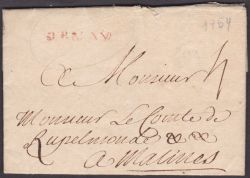 1764
A Monsieur
Monsieur Le Comte de
Rupelmonde & &
a Malines